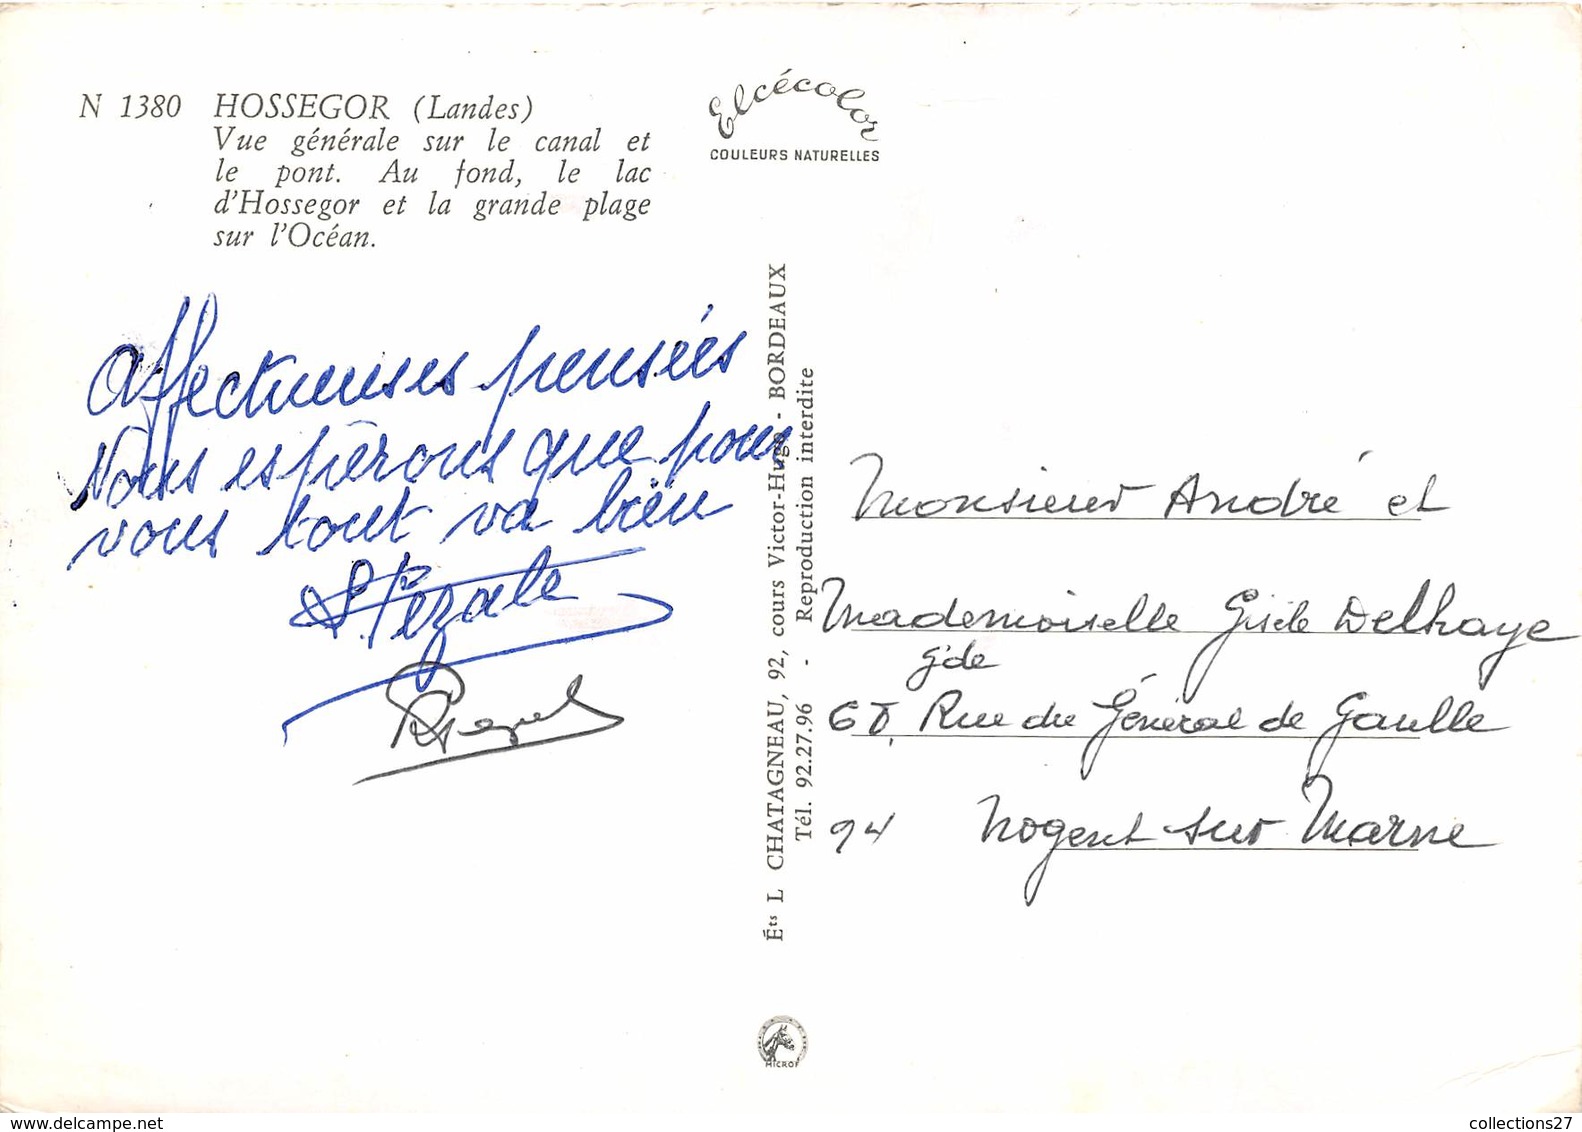 N 1380 HOSSEGOR (Landes)
Vue générale sur le canal et
le pont. Au fond, le lac
d'Hossegor et la grande plage
sur l'Océan.
Elcécolor
COULEURS NATURELLES
Affectueuses pensées
Nous espérons que pour
vous tout va bien
Éts L CHATAGNEAU, 92, cours Victor-Hugo - BORDEAUX
Tél. 92.27.96 - Reproduction interdite
Monsieur André et
Mademoiselle Gisèle Delhaye
gde
Rue du Général de Gaulle
94 Nogent sur Marne
MICRO
collections27